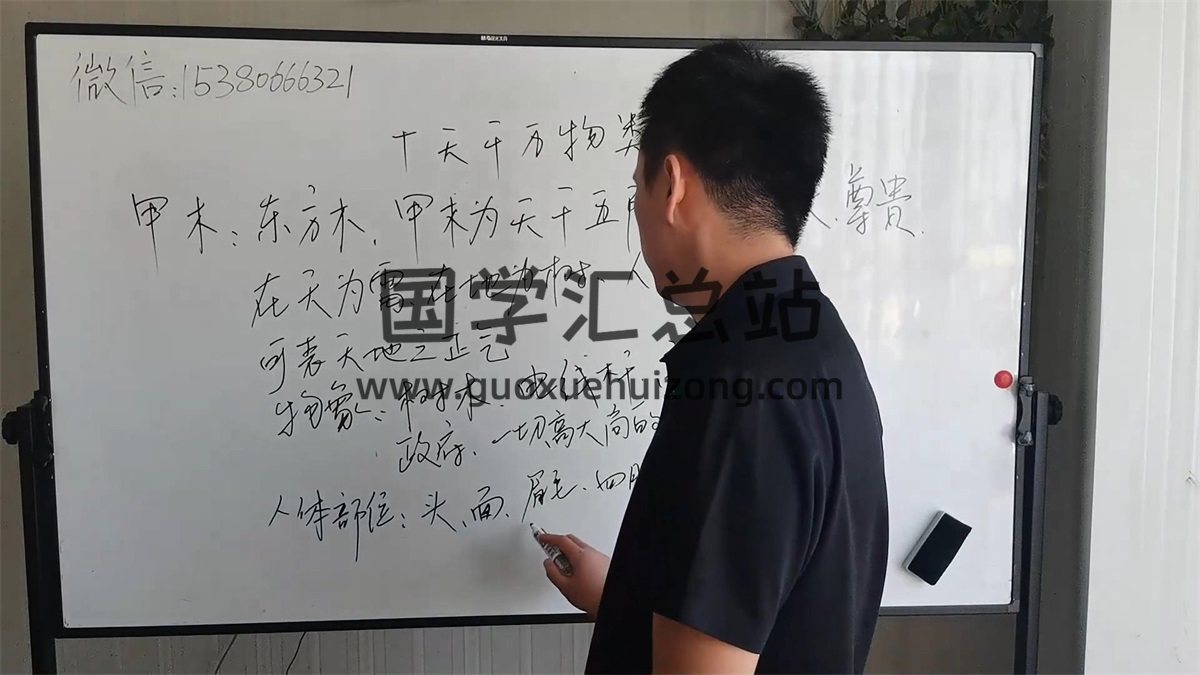 微信:15380666321
十天干万物类
甲木:东方木,甲木为天干五 尊贵.
在天为雷 在地为树、人
可表天地之正气
物象:树木、电线杆
政府、一切高大向
人体部位:头、面、眉毛、四
国学汇总站
www.guoxuehuizong.com